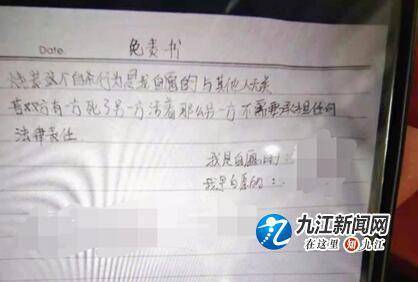 Date:
免责书
烧炭这个自杀行为是我自愿的 与其他人无关
若双方有一方死了另一方活着那么另一方不需要承担任何
法律责任
我是自愿的:
我是自愿的:
九江新闻网
在这里知九江